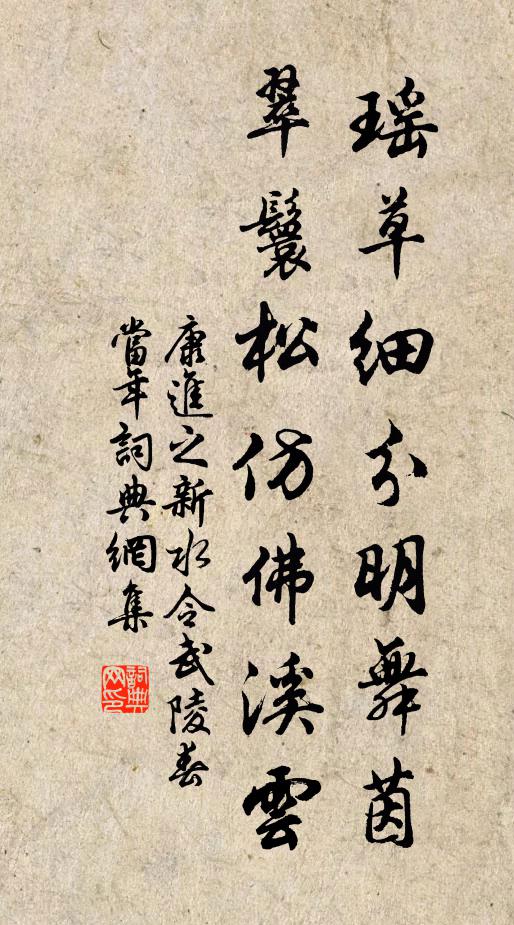 瑶草细分明舞茵
翠鬟松仿佛溪雲
康進之新水令武陵春
當年詞典網集
詞典
网印